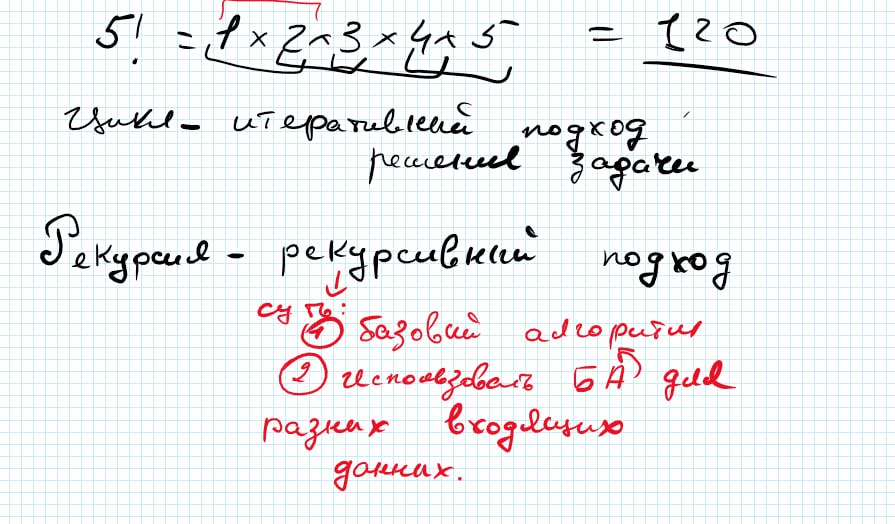 5! = 1 × 2 × 3 × 4 × 5 = 120
Цикл - итеративний подход
решения задачи
Рекурсия - рекурсивний подход
суть:
1 базовий алгоритм
2 Использовать БА для
разних входящих
данних.